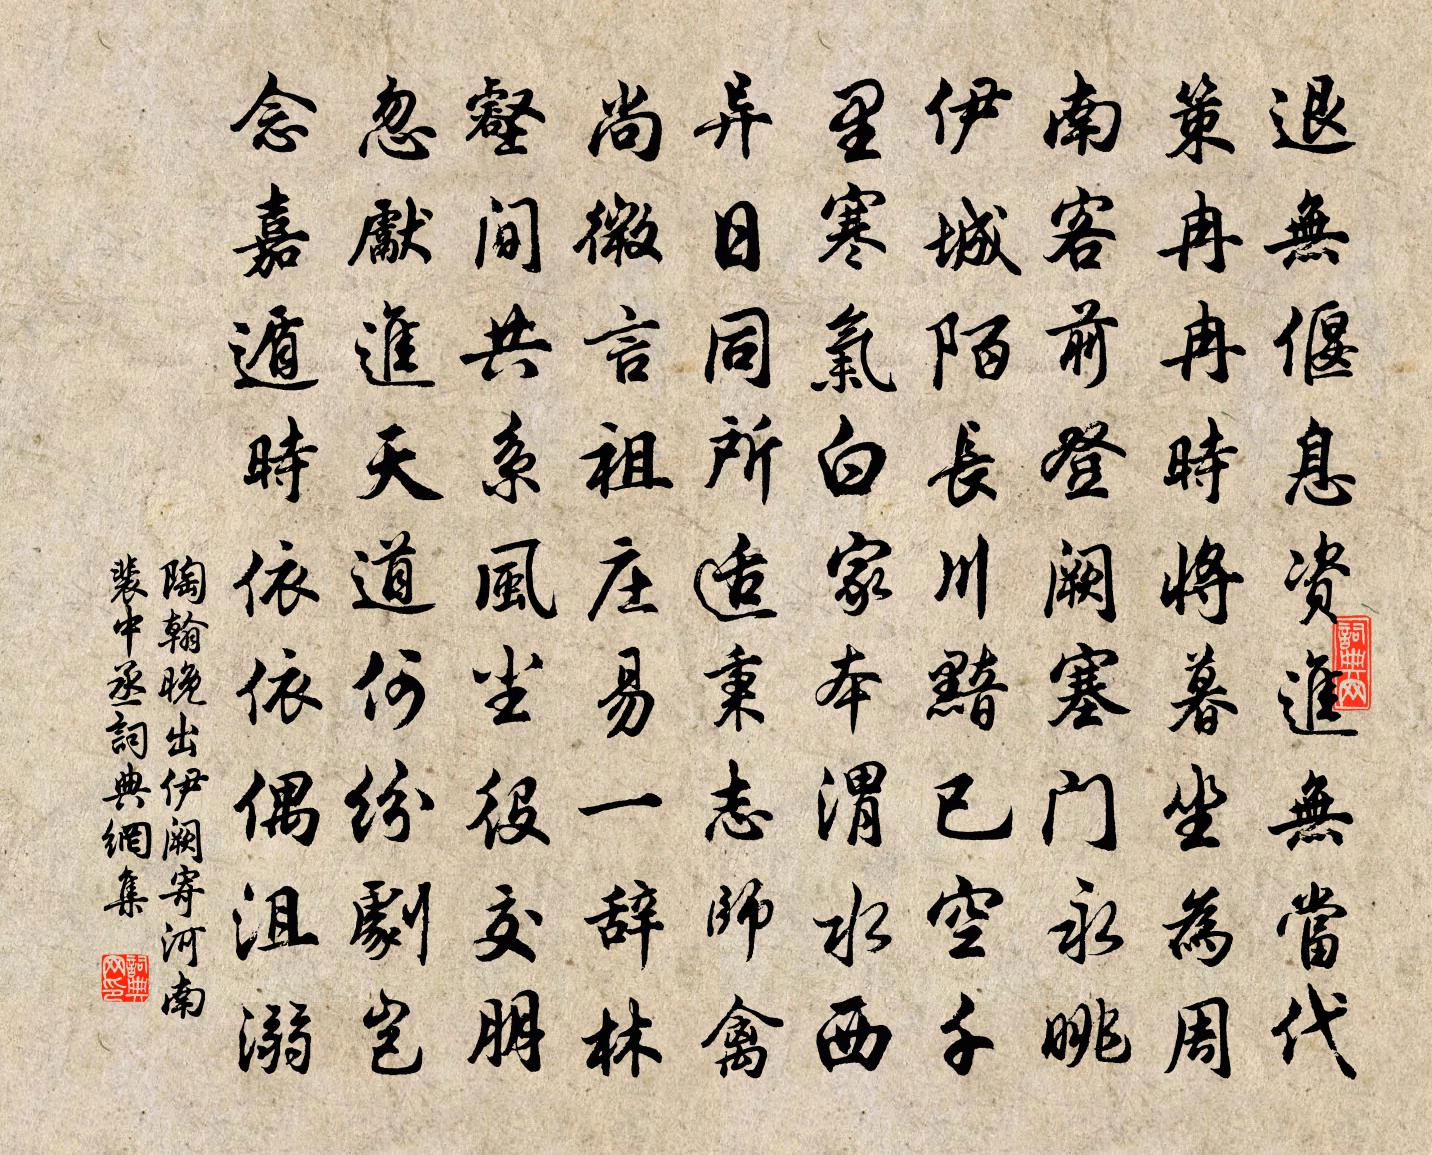 退無偃息資進無當代
策冉冉時将暮坐為周
南客前登阙塞门永眺
伊城陌長川黯已空千
里寒氣白家本渭水西
异日同所适秉志師禽
尚微言祖庄易一辞林
壑间共系風尘役交朋
忽獻進天道何纷劇岂
念嘉遁時依依偶沮溺
陶翰晚出伊阙寄河南
裴中丞詞典網集
詞典网
詞典网印